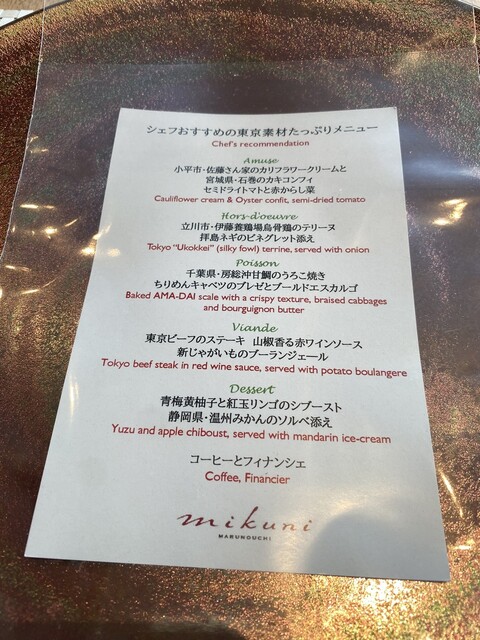 シェフおすすめの東京素材たっぷりメニュー
Chef's recommendation
Amuse
小平市・佐藤さん家のカリフラワークリームと
宮城県・石巻のカキコンフィ
セミドライトマトと赤からし菜
Cauliflower cream & Oyster confit, semi-dried tomato
Hors-d'oeuvre
立川市・伊藤養鶏場烏骨鶏のテリーヌ
拝島ネギのビネグレット添え
Tokyo "Ukokkei" (silky fowl) terrine, served with onion
Poisson
千葉県・房総沖甘鯛のうろこ焼き
ちりめんキャベツのブレゼとブールドエスカルゴ
Baked AMA-DAI scale with a crispy texture, braised cabbages
and bourguignon butter
Viande
東京ビーフのステーキ 山椒香る赤ワインソース
新じゃがいものブーランジェール
Tokyo beef steak in red wine sauce, served with potato boulangere
Dessert
青梅黄柚子と紅玉リンゴのシブースト
静岡県・温州みかんのソルベ添え
Yuzu and apple chiboust, served with mandarin ice-cream
コーヒーとフィナンシェ
Coffee, Financier
mikuni
MARUNOUCHI